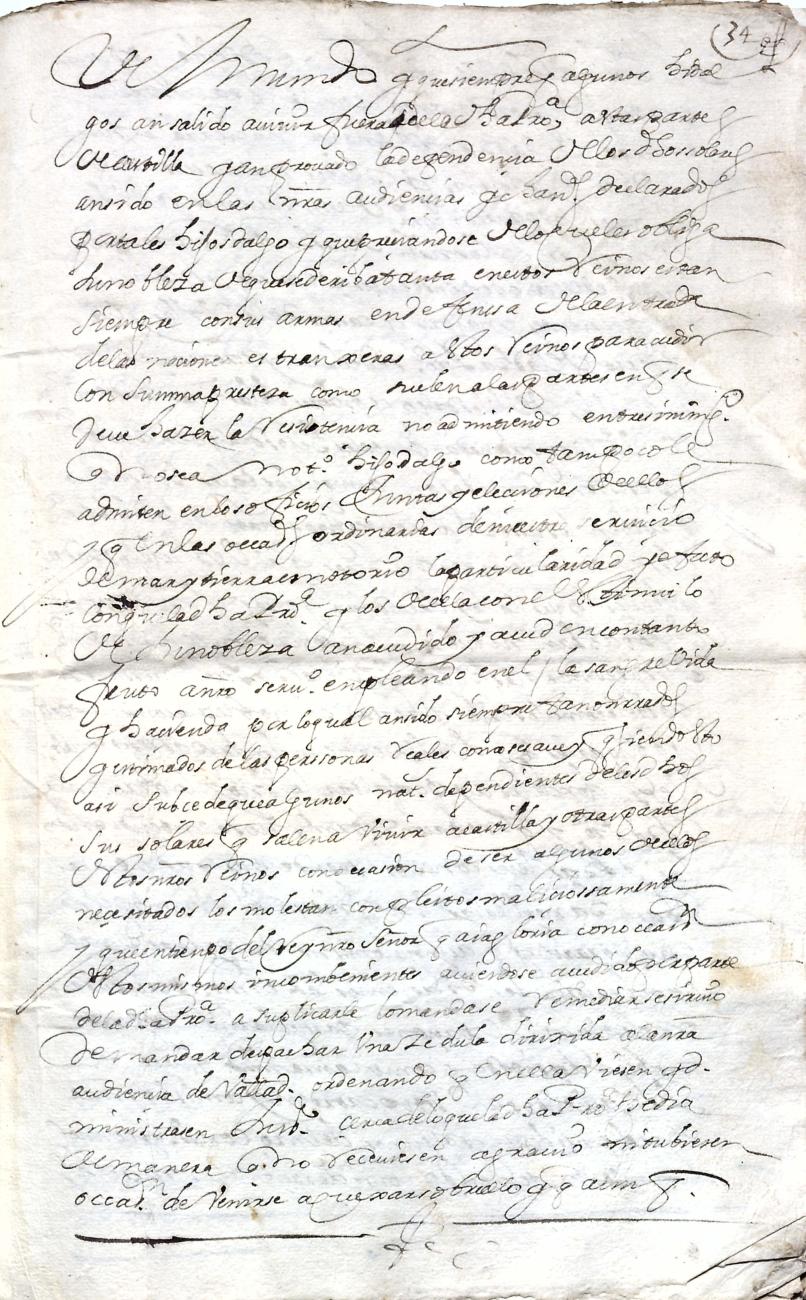 34
del mundo y que siempre q algunos hidal
gos an salido a vivir fuera de la dha Pro.ª a otras partes
de castilla y an provado la dependencia de los dhos solares
an sido en las nras audiencias y chan.s declarados
por tales hijosdalgo y que preciandose de lo que les obliga
su nobleza de que se deriba tanta en estos Reinos estan
siempre con sus armas en defensa de la entrada
de las naciones estranxeras a estos Reinos para acudir
con summa presteza como suelen a las partes en q se
deve hazer la resistencia no admitiendo entre si ning.º
q no sea not.º hijodalgo como tampoco le
admiten en los oficios Juntas y elecciones de ellos
y q en las occas.s ordinarias de nuestro servicio
de mar y tierra es notorio la particularidad y efecto
con que la dha Pro.ª y los de ella con el estimulo
de su nobleza an acudido y acuden con tanto
fruto a nro serv.º empleando en el la sangre vida
y hacienda por lo qual an sido siempre tan onrrados
y estimados de las perssonas Reales como se save y q siendo esto
asi subcede que algunos nat.s dependientes de los dhos
sus solares q salen a vivir a castilla y otras partes
de estos nros Reinos con occasion de ser algunos de ellos
necesitados los molestan con pleitos maliciossamente
y que en tiempo del Rey nro Señor q aia gloria conocean
estos mismos incombenientes aviendose acudido por parte
de la dha Pro.ª a suplicarle lo mandase remediar se sirvio
de mandar despachar una zedula dirixida a la nra
audiencia de Vallad. ordenando q en ella viesen y ad-
ministrasen Just.ª cerca de lo que la dha Pro.ª pedia
de manera q no reciviesen agravio ni tubiesen
occas.on de venirse a quexar sobre ello y q aun q.